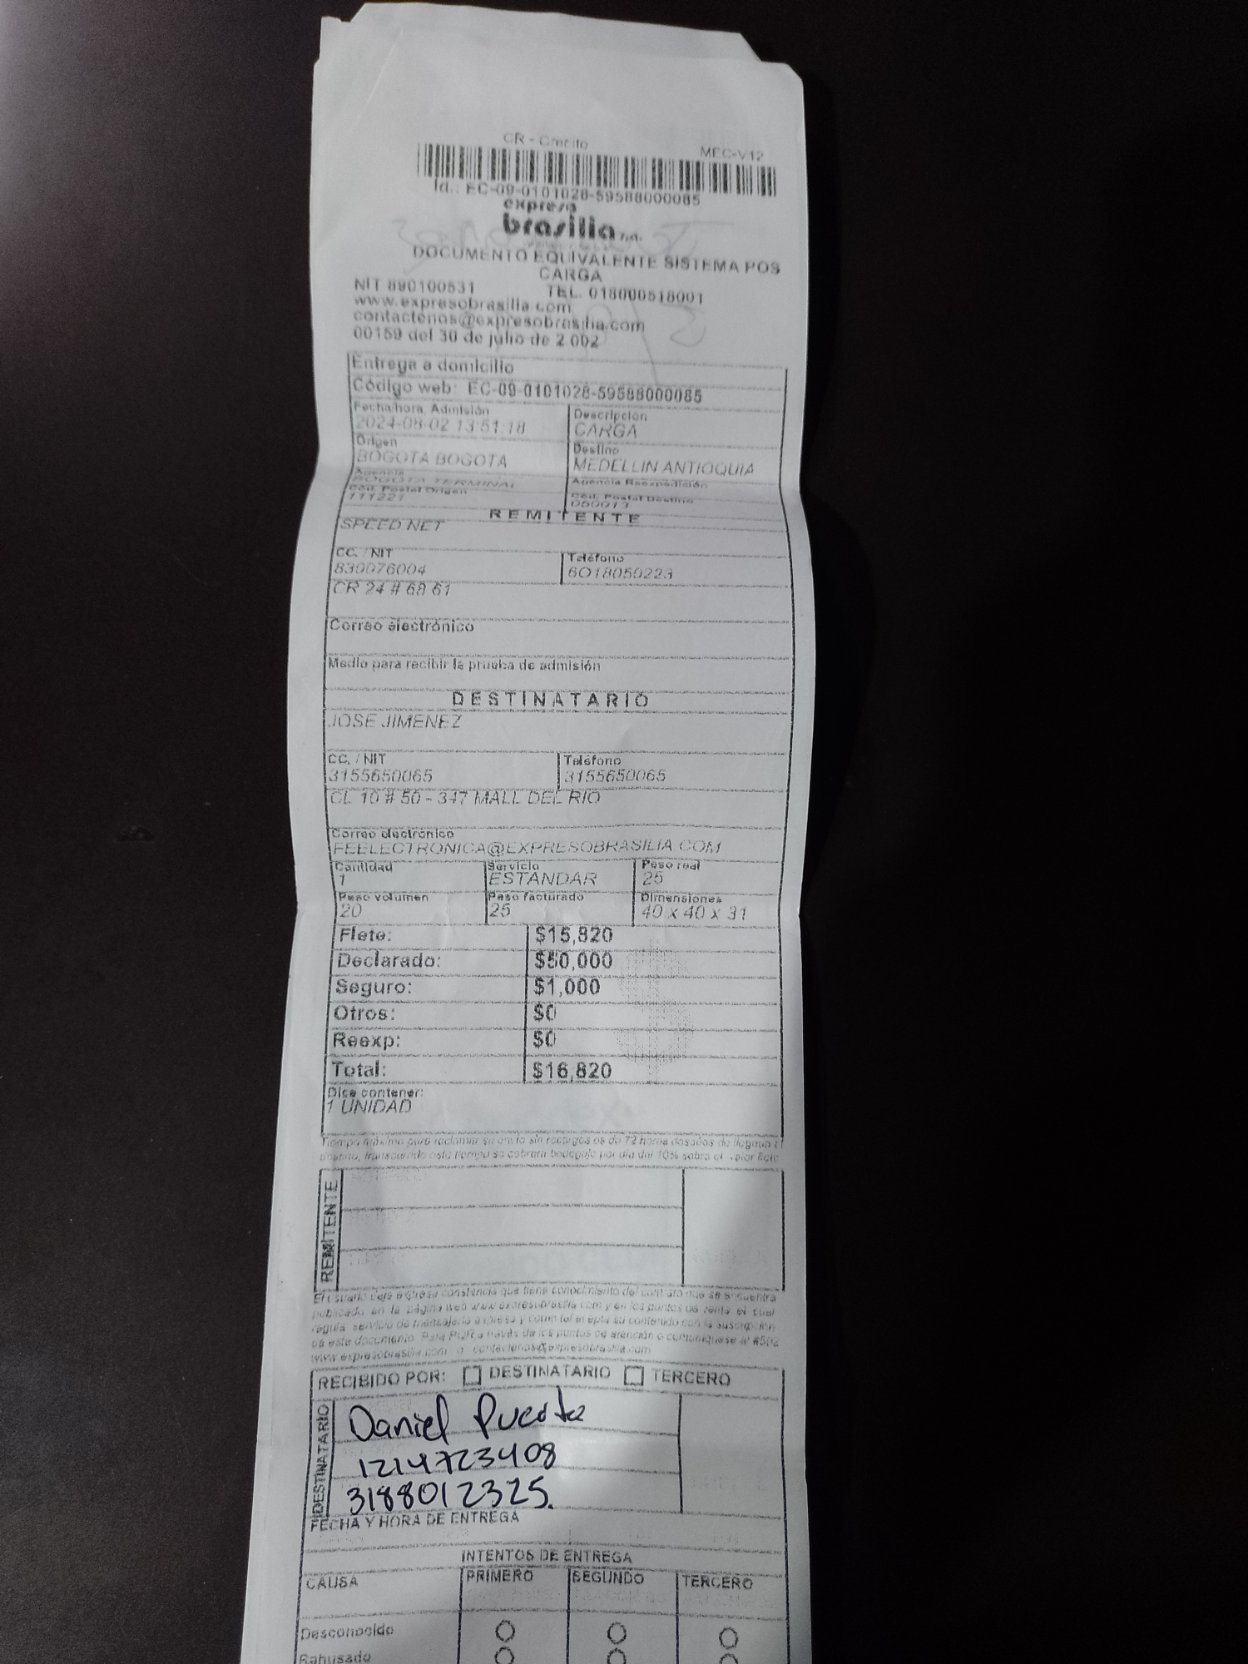 CR - Credito MEC-V12
Id.: EC-09-0101028-59588000085
expreso
brasilia s.a.
DOCUMENTO EQUIVALENTE SISTEMA POS
CARGA
NIT 890100531 TEL. 018000518001
www.expresobrasilia.com
contactenos@expresobrasilia.com
00159 del 30 de julio de 2.002
Entrega a domicilio
Código web: EC-09-0101028-59588000085
Fecha/hora Admisión Descripción
2024-08-02 13:51:18 CARGA
Origen Destino
BOGOTA BOGOTA MEDELLIN ANTIOQUIA
Agencia Agencia Reexpedición
BOGOTA TERMINAL
Cód. Postal Origen Cód. Postal Destino
111221
REMITENTE
SPEED NET
CC. / NIT Teléfono
830076004 6018050223
CR 24 # 68 61
Correo electrónico
Medio para recibir la prueba de admisión
DESTINATARIO
JOSE JIMENEZ
CC. / NIT Teléfono
3155650065 3155650065
CL 10 # 50 - 347 MALL DEL RIO
Correo electrónico
FEELECTRONICA@EXPRESOBRASILIA.COM
Cantidad Servicio Peso real
1 ESTANDAR 25
Peso volumen Peso facturado Dimensiones
20 25 40 x 40 x 31
Flete: $15,820
Declarado: $50,000
Seguro: $1,000
Otros: $0
Reexp: $0
Total: $16,820
Dice contener:
1 UNIDAD
Tiempo máximo para reclamar su envío sin recargos es de 72 horas después de llegada al
destino, transcurrido este tiempo se cobrará bodegaje por día del 10% sobre el valor flete
REMITENTE
El usuario deja expresa constancia que tiene conocimiento del contrato que se encuentra
publicado en la página web www.expresobrasilia.com y en los puntos de venta el cual
regula servicio de mensajería expresa y como tal acepta su contenido con la suscripción
de este documento. Para PQR a través de los puntos de atención o comuníquese al #502
www.expresobrasilia.com o contactenos@expresobrasilia.com
RECIBIDO POR: DESTINATARIO TERCERO
DESTINATARIO
Daniel Puerta
1214723408
3188012325.
FECHA Y HORA DE ENTREGA
INTENTOS DE ENTREGA
CAUSA PRIMERO SEGUNDO TERCERO
Desconocido
Rehusado